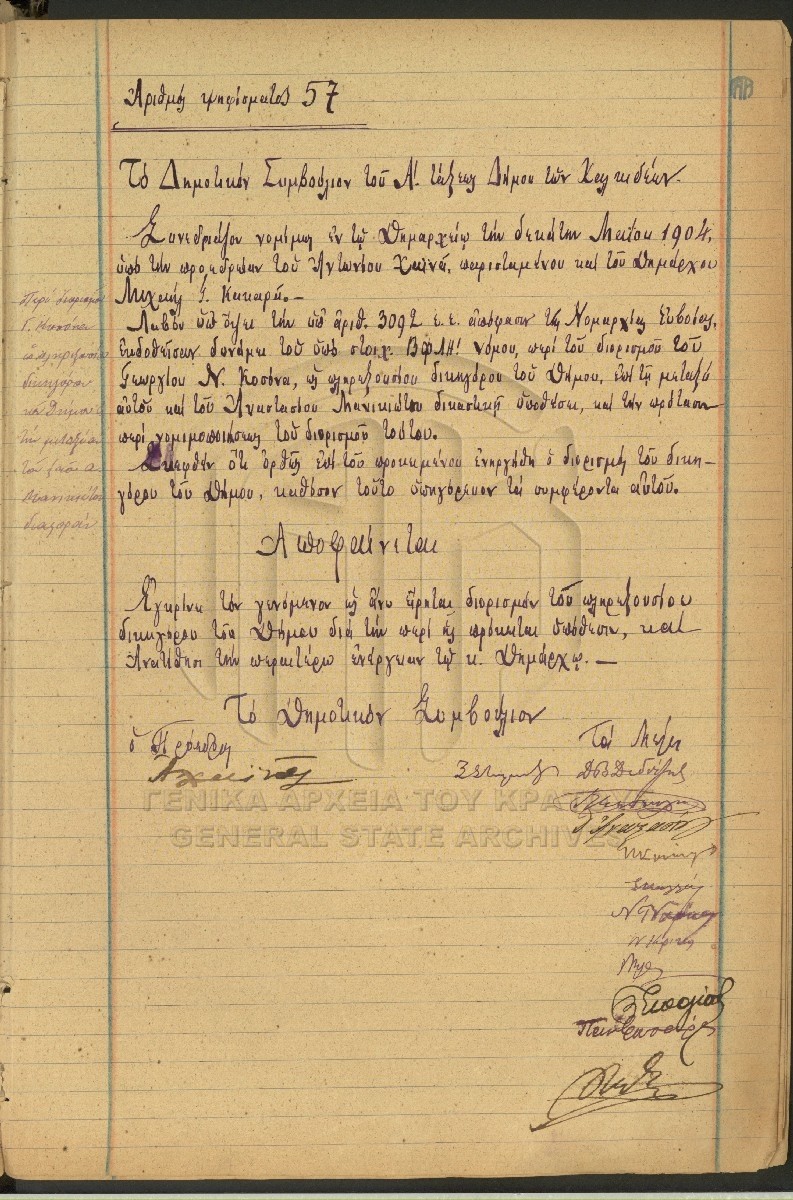 Ἀριθμὸς ψηφίσματος 57
Τὸ Δημοτικὸν Συμβούλιον τοῦ Α! τάξεως Δήμου τῶν Χαλκιδέων.
Συνεδριάζον νομίμως ἐν τῷ Δημαρχείῳ τὴν δεκάτην Μαΐου 1904,
ὑπὸ τὴν προεδρείαν τοῦ Ἀντωνίου Χαϊνᾶ, παρισταμένου καὶ τοῦ Δημάρχου
Μιχαὴλ Ι. Κακαρᾶ. —
Λαβὸν ὑπ' ὄψει τὴν ὑπ' ἀριθ. 3092 ἐ.ἔ. ἀπόφασιν τῆς Νομαρχίας Εὐβοίας,
ἐκδοθεῖσαν δυνάμει τοῦ ὑπὸ στοιχ. ΒΦΛΗ! νόμου, περὶ τοῦ διορισμοῦ τοῦ
Γεωργίου Ν. Κοσόνα, ὡς πληρεξουσίου δικηγόρου τοῦ Δήμου, ἐπὶ τῇ μεταξὺ
αὐτοῦ καὶ τοῦ Ἀναστασίου Μανικιώτου δικαστικῇ ὑποθέσει, καὶ τὴν πρότασιν
περὶ νομιμοποιήσεως τοῦ διορισμοῦ τούτου.
Σκεφθὲν ὅτι ὀρθῶς ἐπὶ τοῦ προκειμένου ἐνηργήθη ὁ διορισμὸς τοῦ δικη-
γόρου τοῦ Δήμου, καθόσον τοῦτο ὑπηγόρευον τὰ συμφέροντα αὐτοῦ.
Ἀποφαίνεται
Ἐγκρίνει τὸν γενόμενον ὡς ἄνω εἴρηται διορισμὸν τοῦ πληρεξουσίου
δικηγόρου τοῦ Δήμου διὰ τὴν περὶ ἧς πρόκειται ὑπόθεσιν, καὶ
Ἀνατίθησι τὴν περαιτέρω ἐνέργειαν τῷ κ. Δημάρχῳ. —
Τὸ Δημοτικὸν Συμβούλιον
ὁ Πρόεδρος
Τὰ Μέλη
Α Χαϊνᾶς
Περὶ διορισμοῦ
Γ. Κοσόνα
ὡς πληρεξουσίου
δικηγόρου
τοῦ Δήμου
τὴν μεταξὺ
διαφοράν
ΓΕΝΙΚΑ ΑΡΧΕΙΑ ΤΟΥ ΚΡΑΤΟΥΣ
GENERAL STATE ARCHIVES